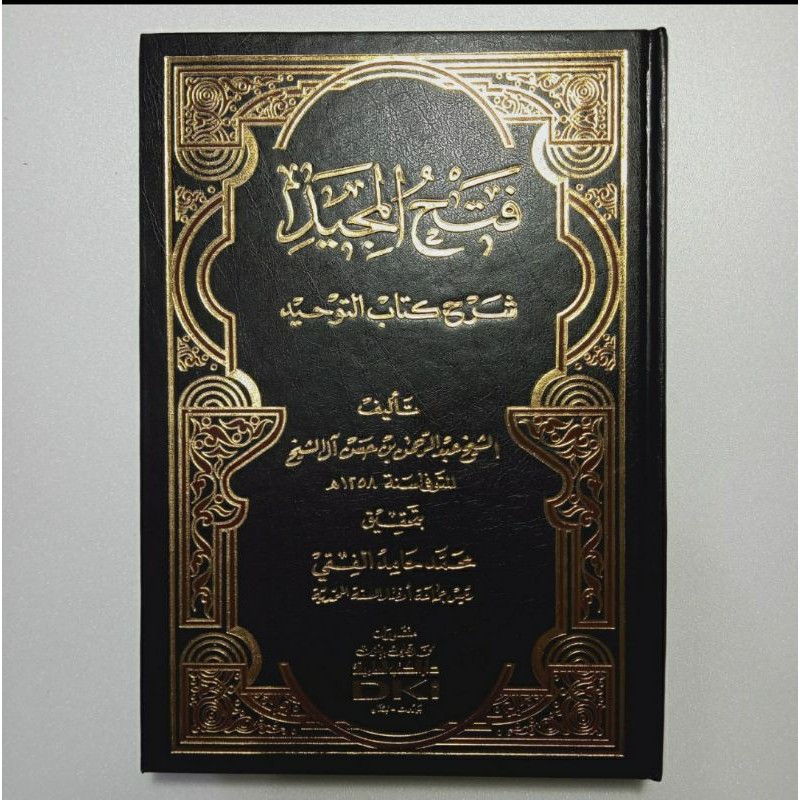 فَتْحُ المَجِيدِ
شَرْح كتاب التوحيد
تأليف
الشيخ عبد الرحمن بن حسن آل الشيخ
المتوفى سنة ١٢٥٨هـ
تحقيق
محمد حامد الفقي
رئيس جماعة أنصار السنة المحمدية
منشورات
محمد علي بيضون
دار الكتب العلمية
DKi
بيروت - لبنان